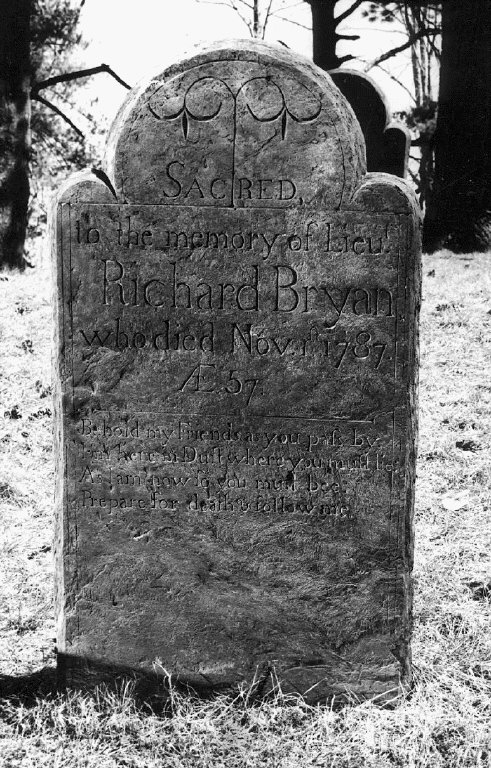 SACRED,
to the memory of Lieut.
Richard Bryan
who died Novr. 1st. 1787
Æ. 57.
Behold my Friends as you pass by
here in Dust & where you must lie
As I am now so you must bee
Prepare for death & follow me.